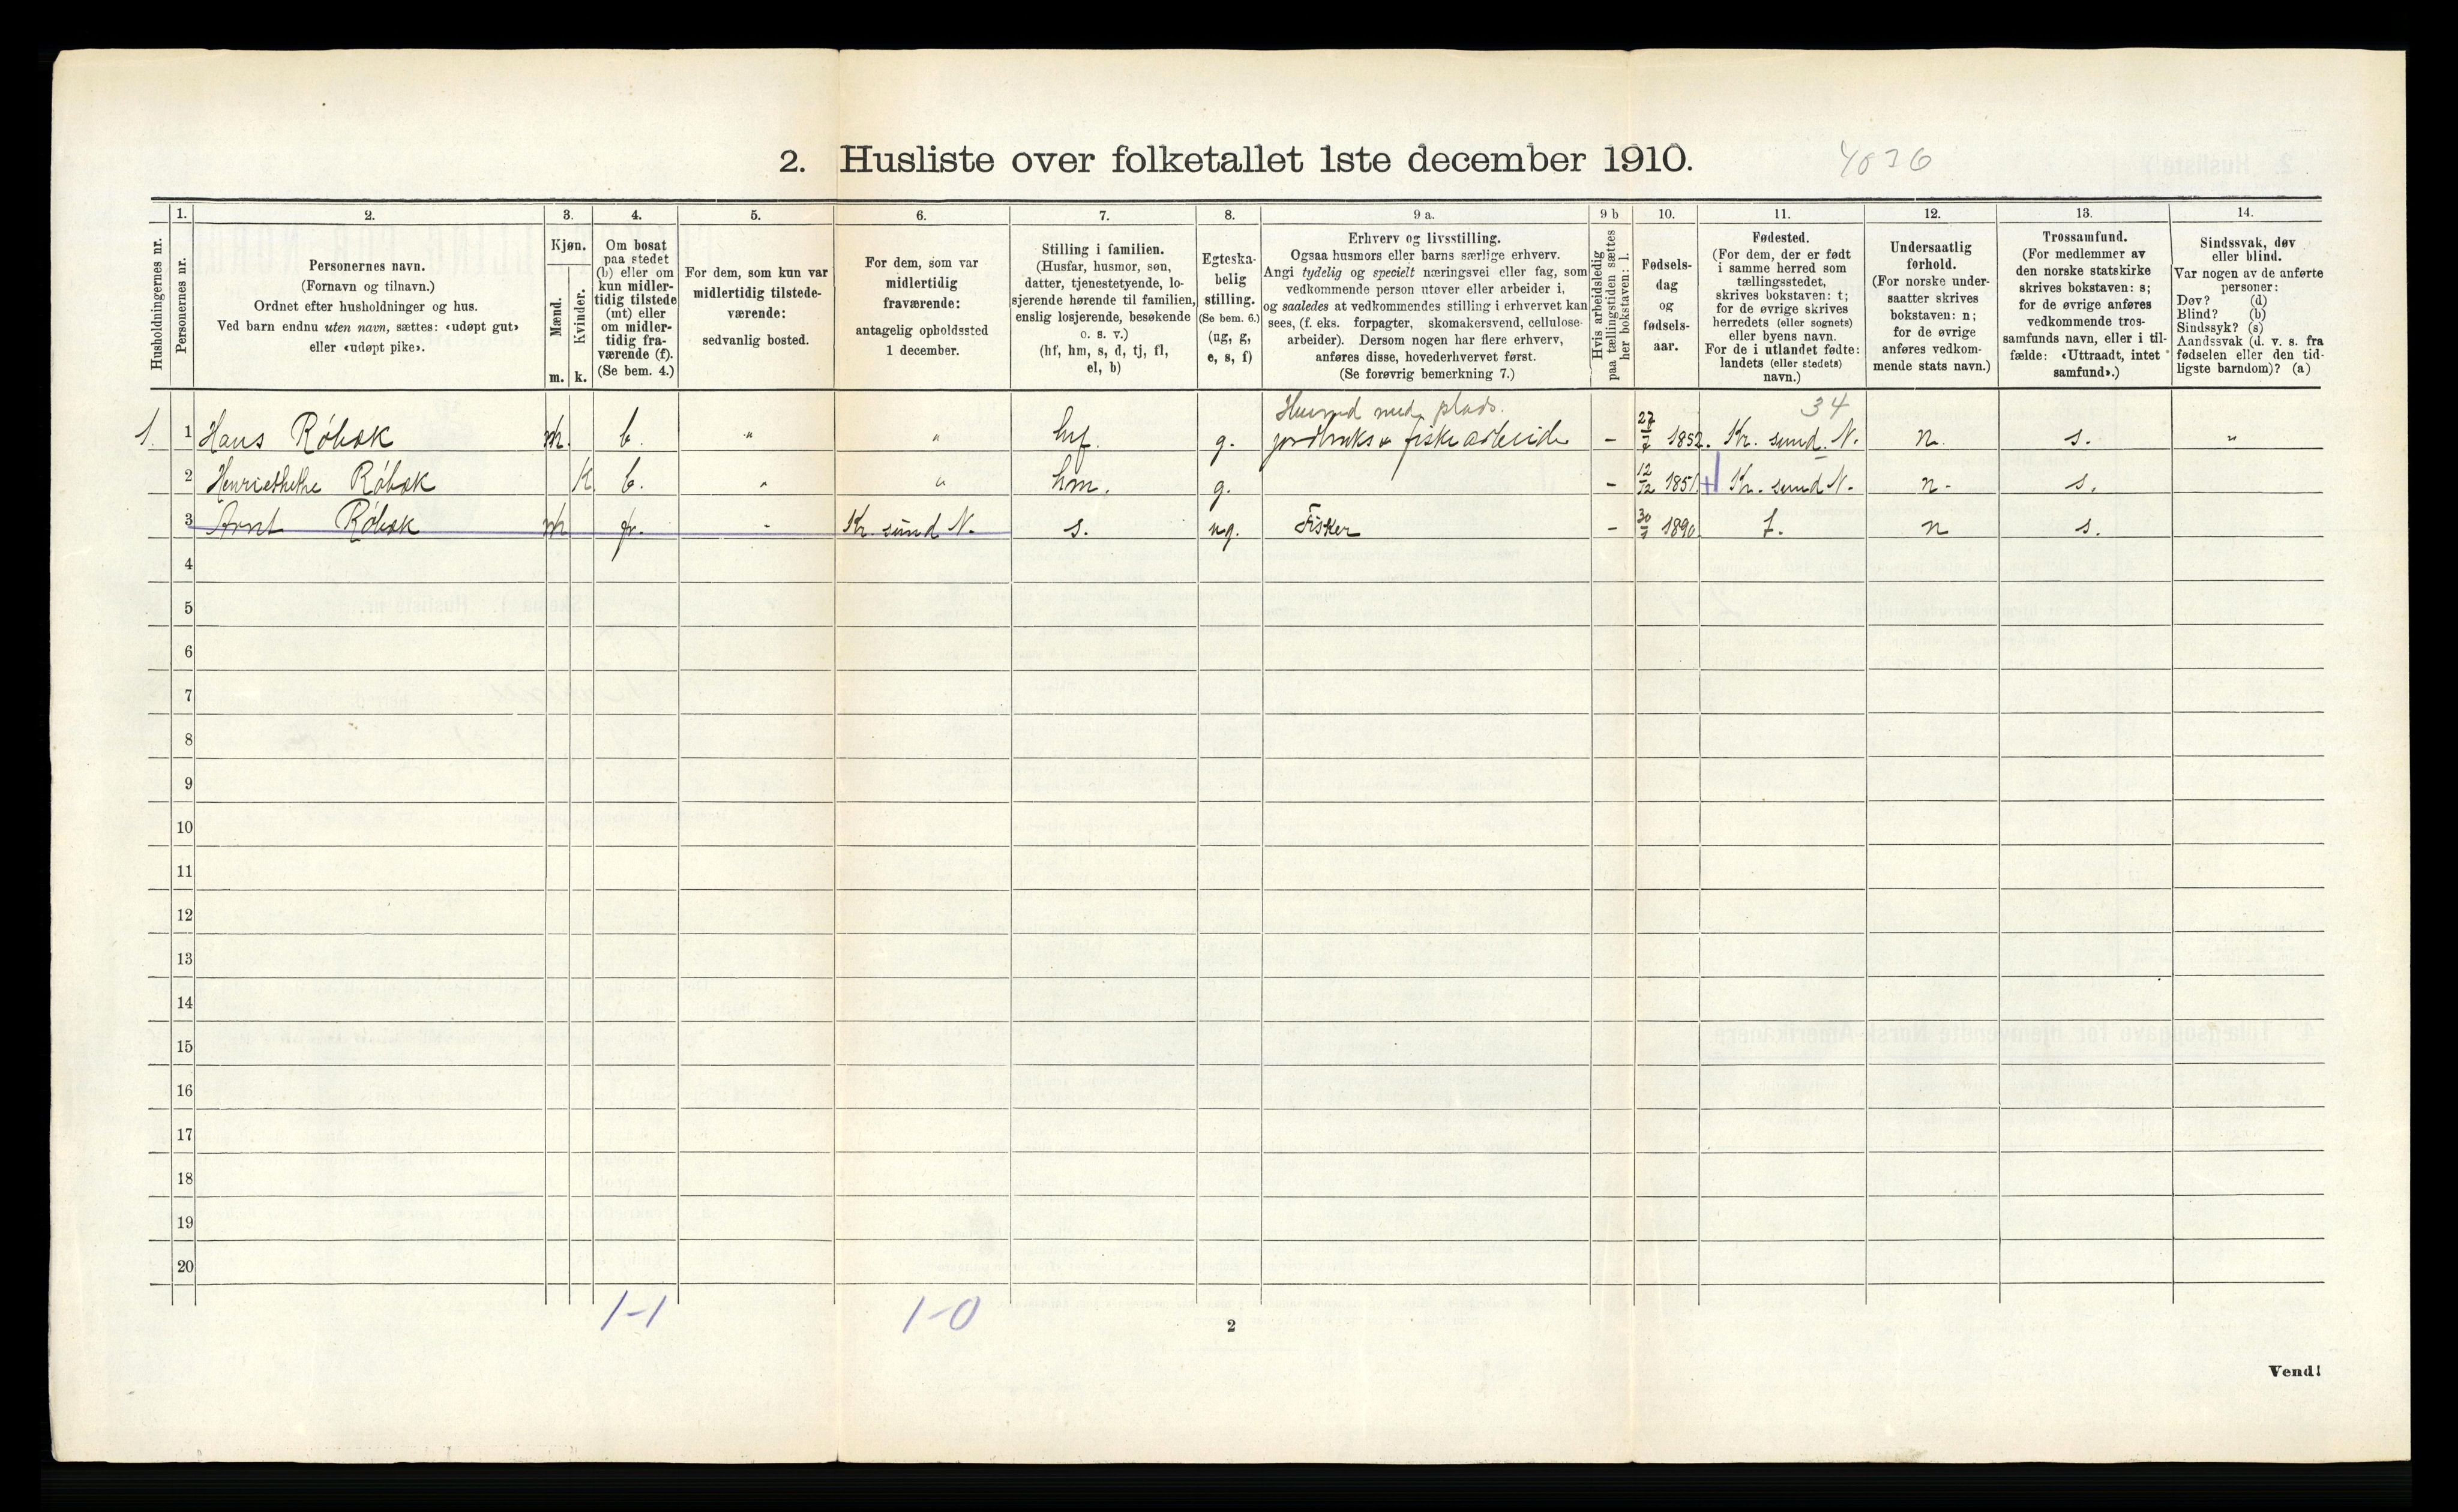 2. Husliste over folketallet 1ste december 1910.
4036
Husholdningernes nr.
1.
Personernes nr.
2.
Personernes navn.
(Fornavn og tilnavn.)
Ordnet efter husholdninger og hus.
Ved barn endnu uten navn, sættes: «udøpt gut»
eller «udøpt pike».
3.
Kjøn.
Mænd.
Kvinder.
m. k.
4.
Om bosat
paa stedet
(b) eller om
kun midler-
tidig tilstede
(mt) eller
om midler-
tidig fra-
værende (f).
(Se bem. 4.)
5.
For dem, som kun var
midlertidig tilstede-
værende:
sedvanlig bosted.
6.
For dem, som var
midlertidig
fraværende:
antagelig opholdssted
1 december.
7.
Stilling i familien.
(Husfar, husmor, søn,
datter, tjenestetyende, lo-
sjerende hørende til familien,
enslig losjerende, besøkende
o. s. v.)
(hf, hm, s, d, tj, fl,
el, b)
8.
Egteska-
belig
stilling.
(Se bem. 6.)
(ug, g,
e, s, f)
9 a.
Erhverv og livsstilling.
Ogsaa husmors eller barns særlige erhverv.
Angi tydelig og specielt næringsvei eller fag, som
vedkommende person utøver eller arbeider i,
og saaledes at vedkommendes stilling i erhvervet kan
sees, (f. eks. forpagter, skomakersvend, cellulose-
arbeider). Dersom nogen har flere erhverv,
anføres disse, hovederhvervet først.
(Se forøvrig bemerkning 7.)
9 b
Hvis arbeidsledig
paa tællingstiden sættes
her bokstaven: l.
10.
Fødsels-
dag
og
fødsels-
aar.
11.
Fødested.
(For dem, der er født
i samme herred som
tællingsstedet,
skrives bokstaven: t;
for de øvrige skrives
herredets (eller sognets)
eller byens navn.
For de i utlandet fødte:
landets (eller stedets)
navn.)
12.
Undersaatlig
forhold.
(For norske under-
saatter skrives
bokstaven: n;
for de øvrige
anføres vedkom-
mende stats navn.)
13.
Trossamfund.
(For medlemmer av
den norske statskirke
skrives bokstaven: s;
for de øvrige anføres
vedkommende tros-
samfunds navn, eller i til-
fælde: «Uttraadt, intet
samfund».)
14.
Sindssvak, døv
eller blind.
Var nogen av de anførte
personer:
Døv? (d)
Blind? (b)
Sindssyk? (s)
Aandssvak (d. v. s. fra
fødselen eller den tid-
ligste barndom)? (a)
Husmd med plads. 34
1. 1 Hans Róbæk m. b. " " hf. g. jordbruks & fiskearbeide - 27/7 1852. Kr. sund. N. n. s. "
2 Henriethethe Róbæk K. b. " " hm. g. - 12/12 1851 + Kr. sund N. n. s.
3 Arnt Róbæk m fr. - Kr. sund N. s. ug. Fisker - 30/7 1890 t. n s.
4
5
6
7
8
9
10
11
12
13
14
15
16
17
18
19
20
1-1 1-0
2
Vend!